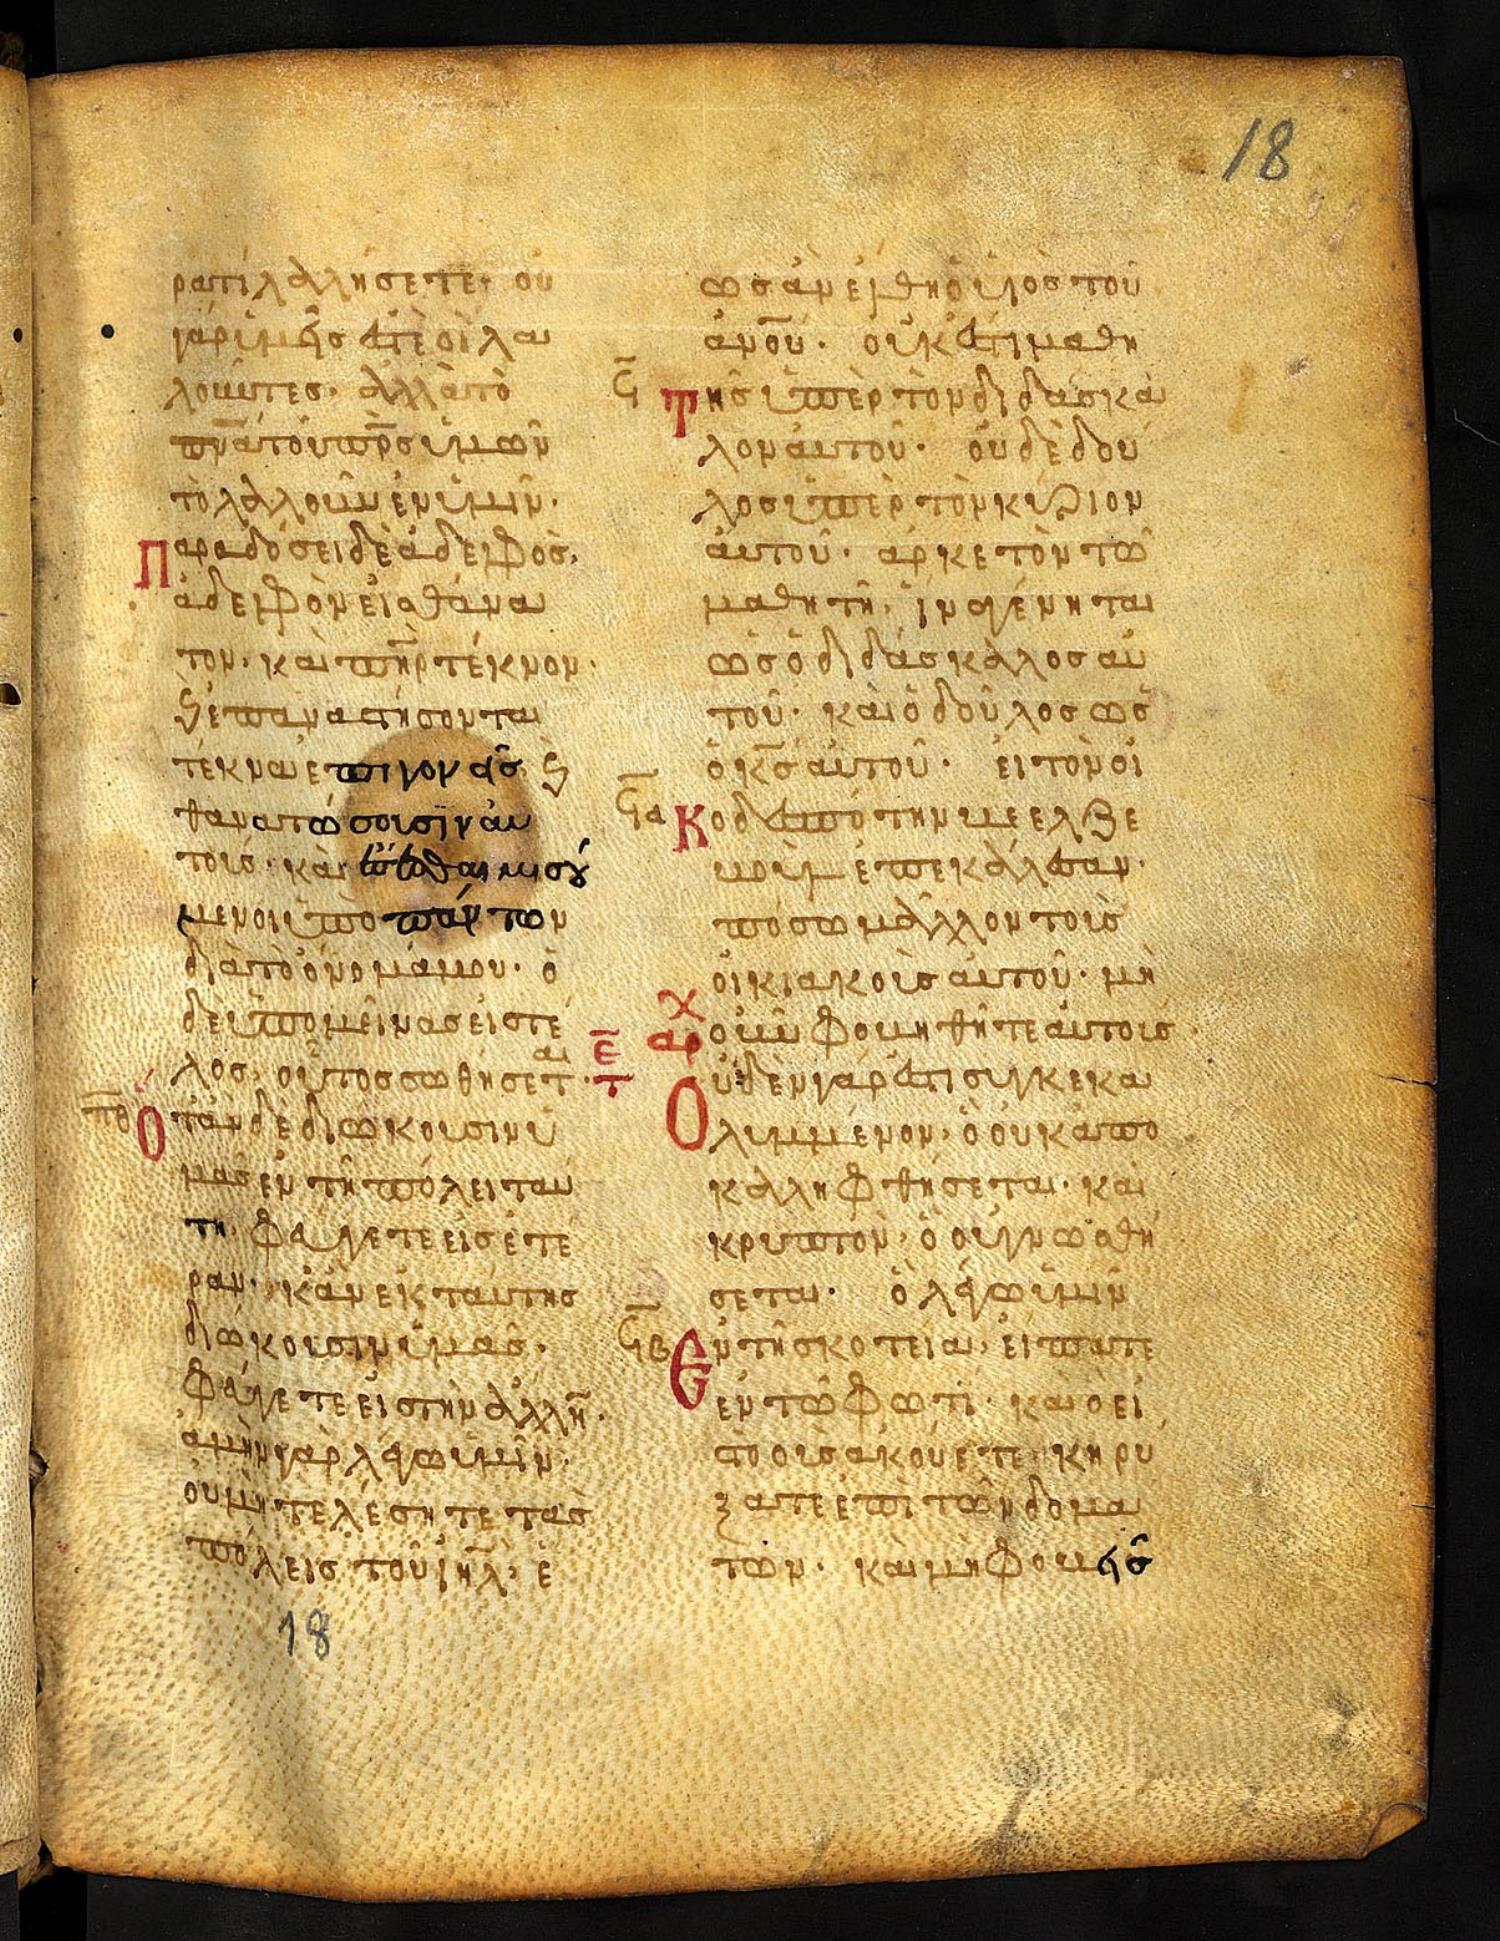 18
ρατι λαλήσετε· οὐ
γὰρ ὑμεῖς ἐστὲ οἱ λα
λοῦντες· ἀλλὰ τὸ
πν̅α τοῦ πρ̅ς ὑμῶν
τὸ λαλοῦν ἐν ὑμῖν·
Παραδώσει δὲ ἀδελφὸς,
ἀδελφὸν εἰς θάνα
τον· καὶ πη̅ρ τέκνον·
ϗ ἐπαναστήσονται
τέκνα ἐπὶ γονεῖς ϗ
θανατώσουσιν αὐ
τούς· καὶ
μενοι ὑπὸ πάντων
διὰ τὸ ὄνομά μου· ὁ
δὲ ὑπομείνας εἰς τέ
λος, οὗτος σωθήσεται·
ε̅ τ̅
π̅θ Ὅταν δὲ διώκουσιν ὑ
μᾶς ἐν τῆ πόλει ταύ
τη· φεύγετε εἰς ἑτέ
ραν· κἂν ἐκ ταύτης
διώκουσιν ὑμᾶς·
φεύγετε εἰς τὴν ἄλλην·
ἀμὴν γὰρ λέγω ὑμῖν·
οὐ μὴ τελέσητε τὰς
πόλεις τοῦ ιη̅λ· ἕ
18
ως ἂν ἔλθη ὁ υἱὸς τοῦ
ἀν̅ου· οὐκ ἔστι μαθη
ϛ̅ Τὴς ὑπὲρ τὸν διδάσκα
λον αὐτοῦ· οὐδὲ δοῦ
λος ὑπὲρ τὸν κύριον
αὐτοῦ· ἀρκετὸν τῶ
μαθητῆ· ἵνα γένηται
ὡς ὁ διδάσκαλος αὐ
τοῦ· καὶ ὁ δοῦλος ὡς
ὁ κ̅ς αὐτοῦ· εἰ τὸν οἰ
ϛ̅α Κοδεσπότην βεελζε
βοὺλ ἐπεκάλεσαν·
πόσω μᾶλλον τοὺς
οἰκιακοὺς αὐτοῦ· μὴ
αρχ οὖν φοβηθῆτε αὐτούς·
Οὐδὲν γάρ ἐστι συγκεκα
λυμμένον· ὃ οὐκ ἀπο
καλυφθήσεται· καὶ
κρυπτόν· ὃ οὐ γνωσθή
σεται· ὃ λέγω ὑμῖν
ϛ̅β Ἐν τῆ σκοτεία· εἴπατε
ἐν τῶ φωτί· καὶ ὃ εἰς
τὸ οὖς ἀκούετε· κηρύ
ξατε ἐπὶ τῶν δομά
των· καὶ μὴ φοβεῖσ